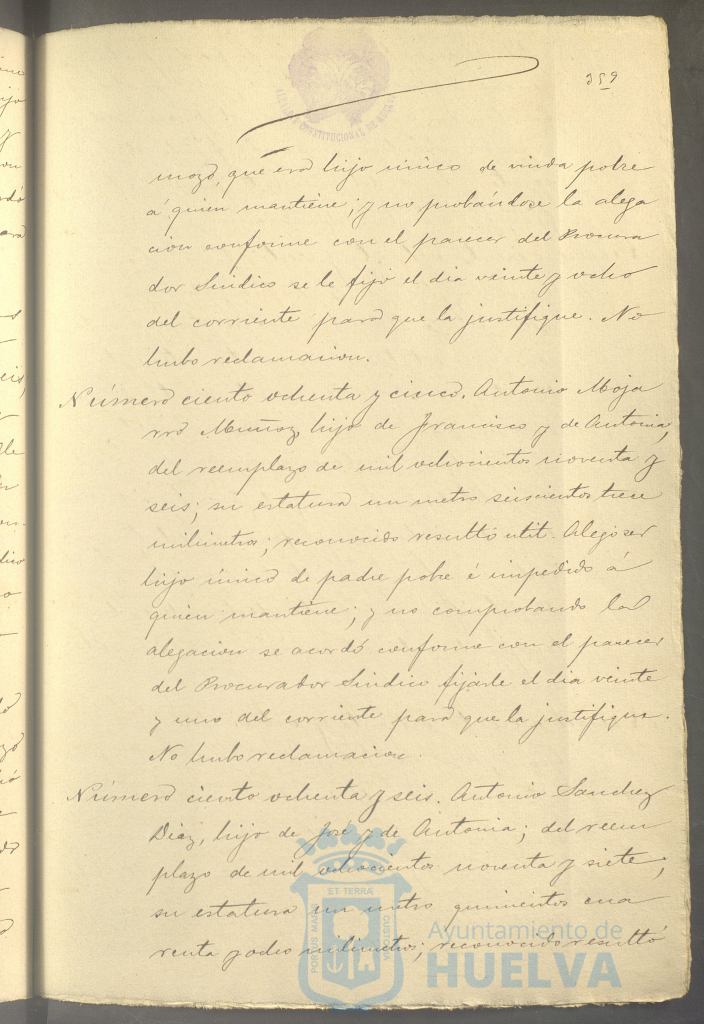 359
mozo, que era hijo único de viuda pobre
á quien mantiene; y no probándose la alega
cion conforme con el parecer del Procura
dor Sindico se le fijó el dia veinte y ocho
del corriente para que la justifique. No
hubo reclamacion.
Número ciento ochenta y cinco. Antonio Moja
rro Muñoz, hijo de Francisco y de Antonia,
del reemplazo de mil ochocientos noventa y
seis; su estatura un metro seiscientos trece
milimetros; reconocido resultó util. Alegó ser
hijo único de padre pobre é impedido á
quien mantiene; y no comprobando la
alegacion se acordó conforme con el parecer
del Procurador Sindico fijarle el dia veinte
y uno del corriente para que la justifique.
No hubo reclamacion.
Número ciento ochenta y seis. Antonio Sanchez
Diaz, hijo de José y de Antonia; del reem
plazo de mil ochocientos noventa y siete;
su estatura un metro quinientos cua
renta y ocho milimetros; reconocido resultó
PORTUS MARIS ET TERRÆ CUSTODIA
Ayuntamiento de
HUELVA